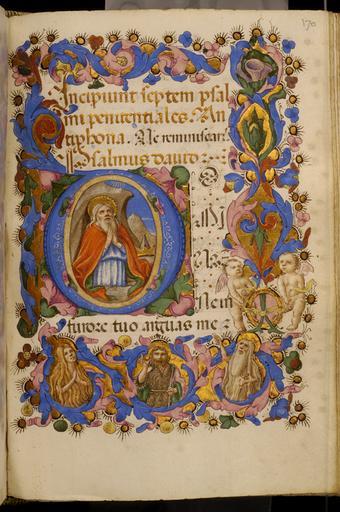 170
Incipiunt septem psal
mi penitentiales. An
tiphona. Ne reminiscar.
Psalmus david
Ne in
furore tuo arguas me